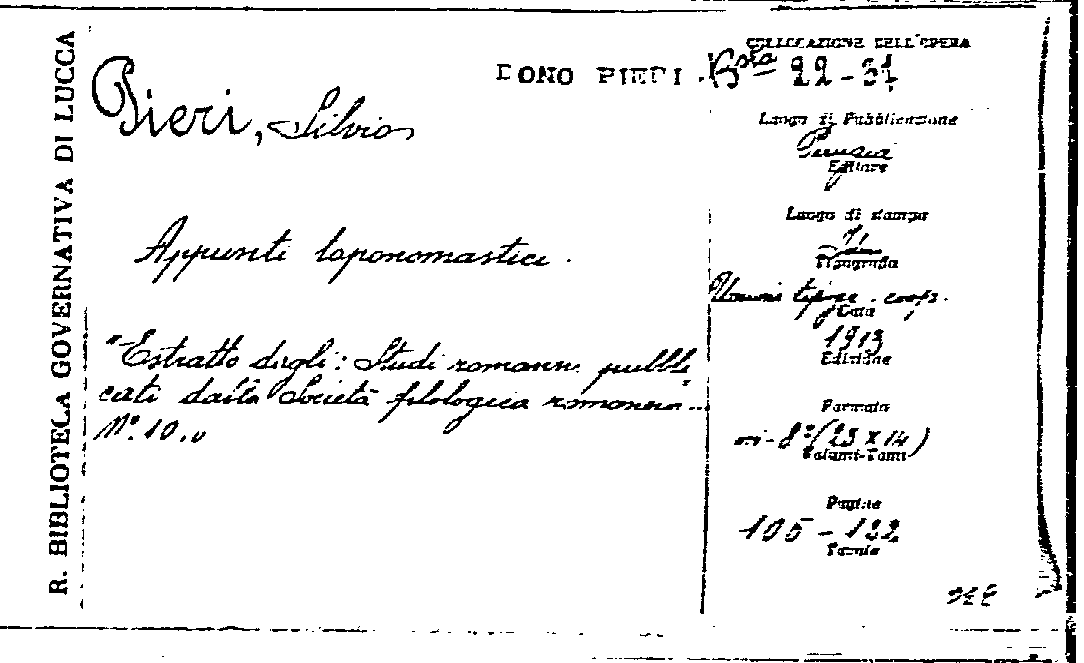 R. BIBLIOTECA GOVERNATIVA DI LUCCA
COLLOCAZIONE DELL'OPERA
DONO PIERI. Bsta 22-31
Pieri, Silvio
Luogo di Pubblicazione
Perugia
Editore
Luogo di stampa
Tipografia
Appunti toponomastici.
Unione tipogr. coop.
Data
1913
Edizione
"Estratto dagli: Studi romanzi pubbli
cati dalla Società filologica romana...
N°. 10."
Formato
in-8° (23 x 14)
Volumi-Tomi
Pagine
105-122
Tavole